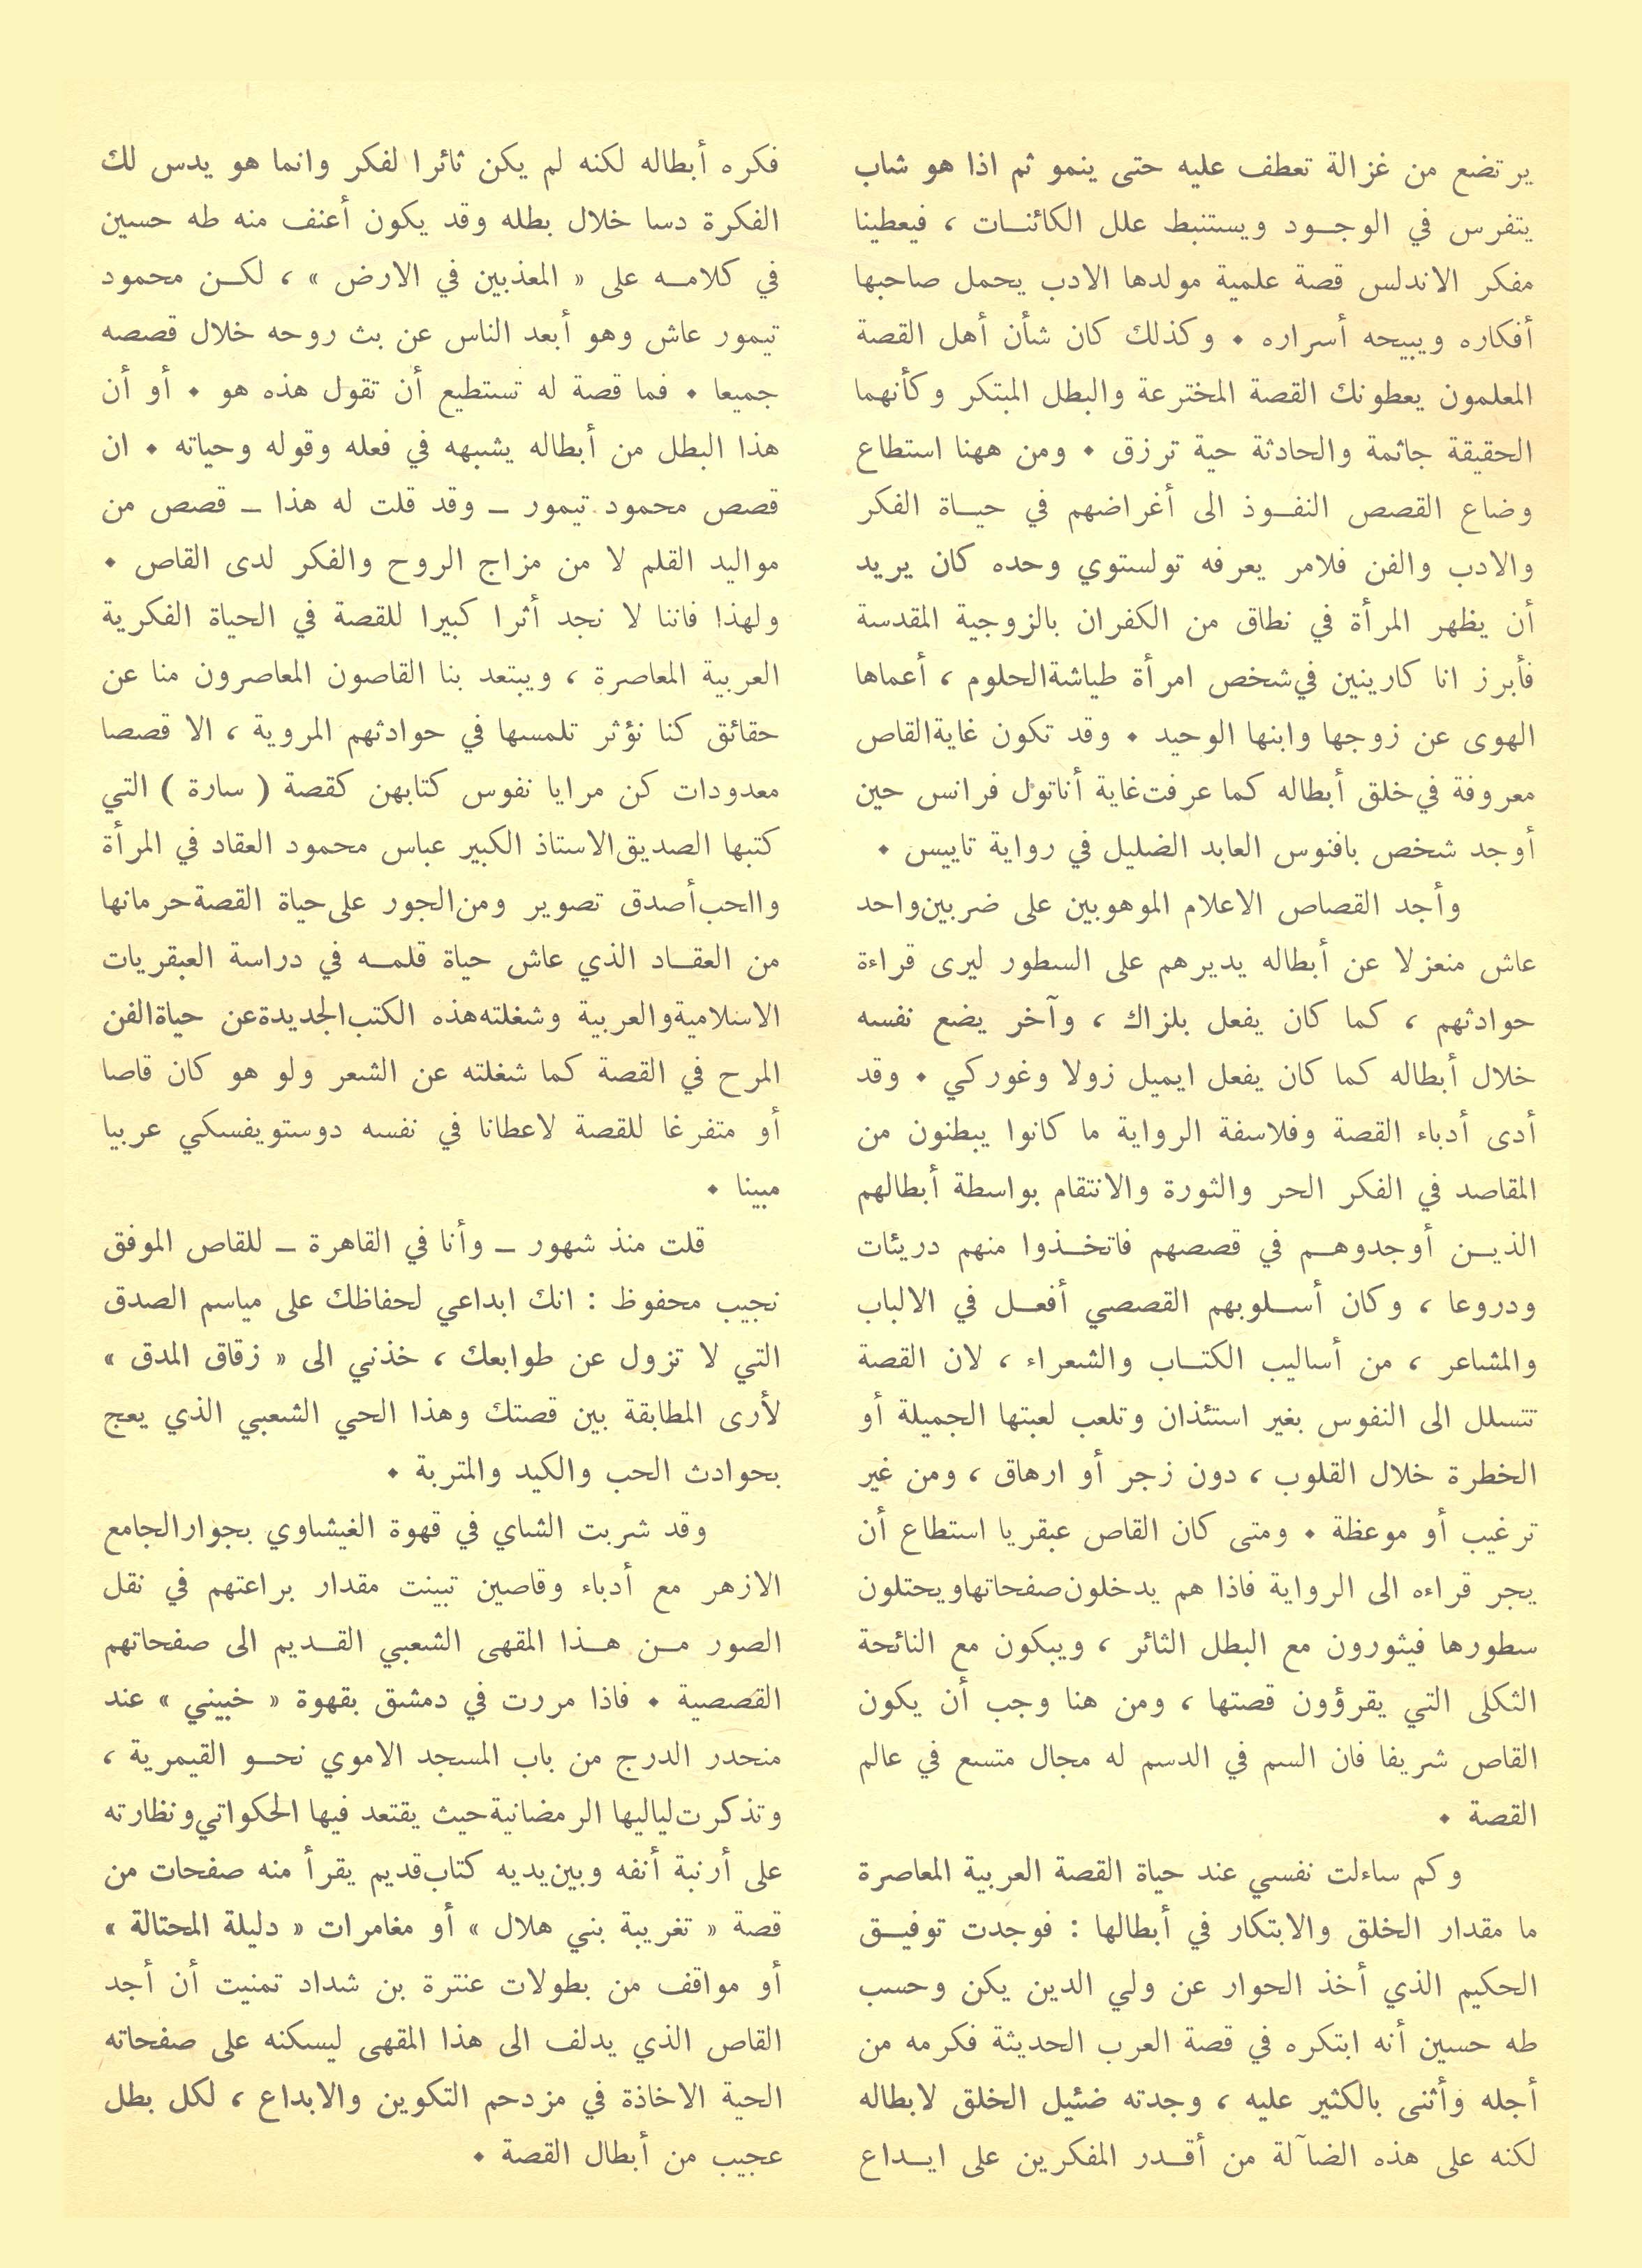 يرتضع من غزالة تعطف عليه حتى ينمو ثم اذا هو شاب
يتفرس في الوجـود ويستنبط علل الكائنـات ، فيعطينا
مفكر الاندلس قصة علمية مولدها الادب يحمل صاحبها
أفكاره ويبيحه أسراره • وكذلك كان شأن أهل القصة
المعلمون يعطونك القصة المخترعة والبطل المبتكر وكأنهما
الحقيقة جاثمة والحادثة حية ترزق • ومن ههنا استطاع
وضاع القصص النفـوذ الى أغراضهم في حيـاة الفكر
والادب والفن فلامر يعرفه تولستوي وحده كان يريد
أن يظهر المرأة في نطاق من الكفران بالزوجية المقدسة
فأبرز انا كارينين في شخص امرأة طياشة الحلوم ، أعماها
الهوى عن زوجها وابنها الوحيد • وقد تكون غاية القاص
معروفة في خلق أبطاله كما عرفت غاية أناتول فرانس حين
أوجد شخص بافنوس العابد الضليل في رواية تاييس •
وأجد القصاص الاعلام الموهوبين على ضربين واحد
عاش منعزلا عن أبطاله يديرهم على السطور ليرى قراءة
حوادثهم ، كما كان يفعل بلزاك ، وآخر يضع نفسه
خلال أبطاله كما كان يفعل ايميل زولا وغوركي • وقد
أدى أدباء القصة وفلاسفة الرواية ما كانوا يبطنون من
المقاصد في الفكر الحر والثورة والانتقام بواسطة أبطالهم
الذيـن أوجدوهـم في قصصهم فاتخـذوا منهم دريئات
ودروعا ، وكان أسـلوبهم القصصي أفعـل في الالباب
والمشاعر ، من أساليب الكتـاب والشعراء ، لان القصة
تتسلل الى النفوس بغير استئذان وتلعب لعبتها الجميلة أو
الخطرة خلال القلوب ، دون زجر أو ارهاق ، ومن غير
ترغيب أو موعظة • ومتى كان القاص عبقريا استطاع أن
يجر قراءه الى الرواية فاذا هم يدخلون صفحاتها ويحتلون
سطورها فيثورون مع البطل الثائر ، ويبكون مع النائحة
الثكلى التي يقرؤون قصتها ، ومن هنا وجب أن يكون
القاص شريفا فان السم في الدسم له مجال متسع في عالم
القصة •
وكم ساءلت نفسي عند حياة القصة العربية المعاصرة
ما مقدار الخلق والابتكار في أبطالها : فوجدت توفيـق
الحكيم الذي أخذ الحوار عن ولي الدين يكن وحسب
طه حسين أنه ابتكره في قصة العرب الحديثة فكرمه من
أجله وأثنى بالكثير عليه ، وجدته ضئيل الخلق لابطاله
لكنه على هذه الضآلة من أقـدر المفكرين على ايـداع
فكره أبطاله لكنه لم يكن ثائرا لفكر وانما هو يدس لك
الفكرة دسا خلال بطله وقد يكون أعنف منه طه حسين
في كلامـه على « المعذبين في الارض » ، لكـن محمود
تيمور عاش وهو أبعد الناس عن بث روحه خلال قصصه
جميعا • فما قصة له تستطيع أن تقول هذه هو • أو أن
هذا البطل من أبطاله يشبهه في فعله وقوله وحياته • ان
قصص محمود تيمور – وقد قلت له هذا – قصص من
مواليد القلم لا من مزاج الروح والفكر لدى القاص •
ولهذا فاننا لا نجد أثرا كبيرا للقصة في الحياة الفكرية
العربية المعاصرة ، ويبتعد بنا القاصون المعاصرون منا عن
حقائق كنا نؤثر تلمسها في حوادثهم المروية ، الا قصصا
معدودات كن مرايا نفوس كتابهن كقصة ( سارة ) التي
كتبها الصديق الاستاذ الكبير عباس محمود العقاد في المرأة
واالحب أصدق تصوير ومن الجور على حياة القصة حرمانها
من العقـاد الذي عاش حياة قلمـه في دراسة العبقريات
الاسلامية والعربية وشغلته هذه الكتب الجديدة عن حياة الفن
المرح في القصة كما شغلته عن الشعر ولو هو كان قاصا
أو متفرغا للقصة لاعطانا في نفسه دوستويفسكي عربيا
مبينا •
قلت منذ شهور – وأنا في القاهرة – للقاص الموفق
نجيب محفوظ : انك ابداعي لحفاظك على مياسم الصدق
التي لا تزول عن طوابعك ، خذني الى « زقاق المدق »
لأرى المطابقة بين قصتك وهذا الحي الشعبي الذي يعج
بحوادث الحب والكيد والمتربة •
وقد شربت الشاي في قهوة الفيشاوي بجوار الجامع
الازهر مع أدباء وقاصين تبينت مقدار براعتهم في نقل
الصور مـن هـذا المقهى الشعبي القـديم الى صفحاتهم
القصصية • فاذا مررت في دمشق بقهوة « خبيني » عند
منحدر الدرج من باب المسجد الاموي نحـو القيمرية ،
وتذكرت لياليها الرمضانية حيث يقتعد فيها الحكواتي ونظارته
على أرنبة أنفه وبين يديه كتاب قديم يقرأ منه صفحات من
قصة « تغريبة بني هلال » أو مغامرات « دليلة المحتالة »
أو مواقف من بطولات عنترة بن شداد تمنيت أن أجد
القاص الذي يدلف الى هذا المقهى ليسكنه على صفحاته
الحية الاخاذة في مزدحم التكوين والابداع ، لكل بطل
عجيب من أبطال القصة •